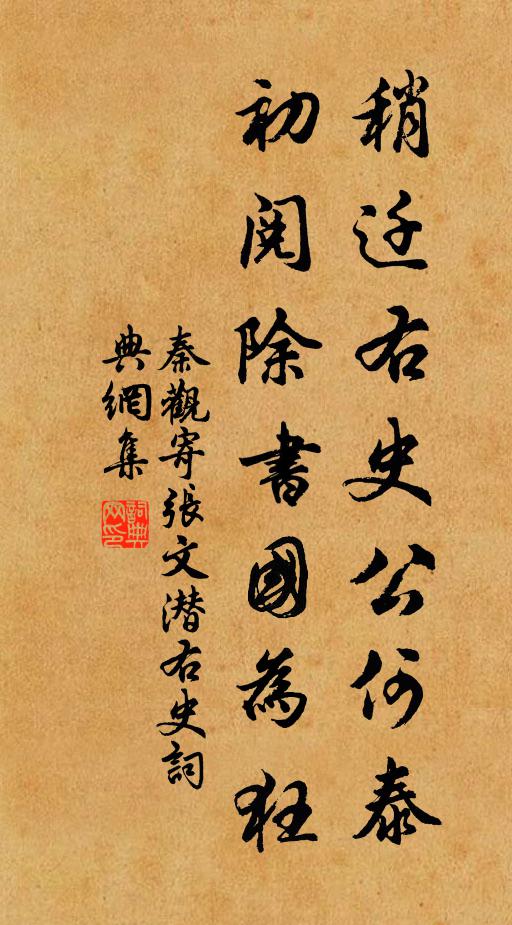 稍迁右史公何泰
初阅除書國為狂
秦觀寄張文潜右史詞
典網集
詞典网印